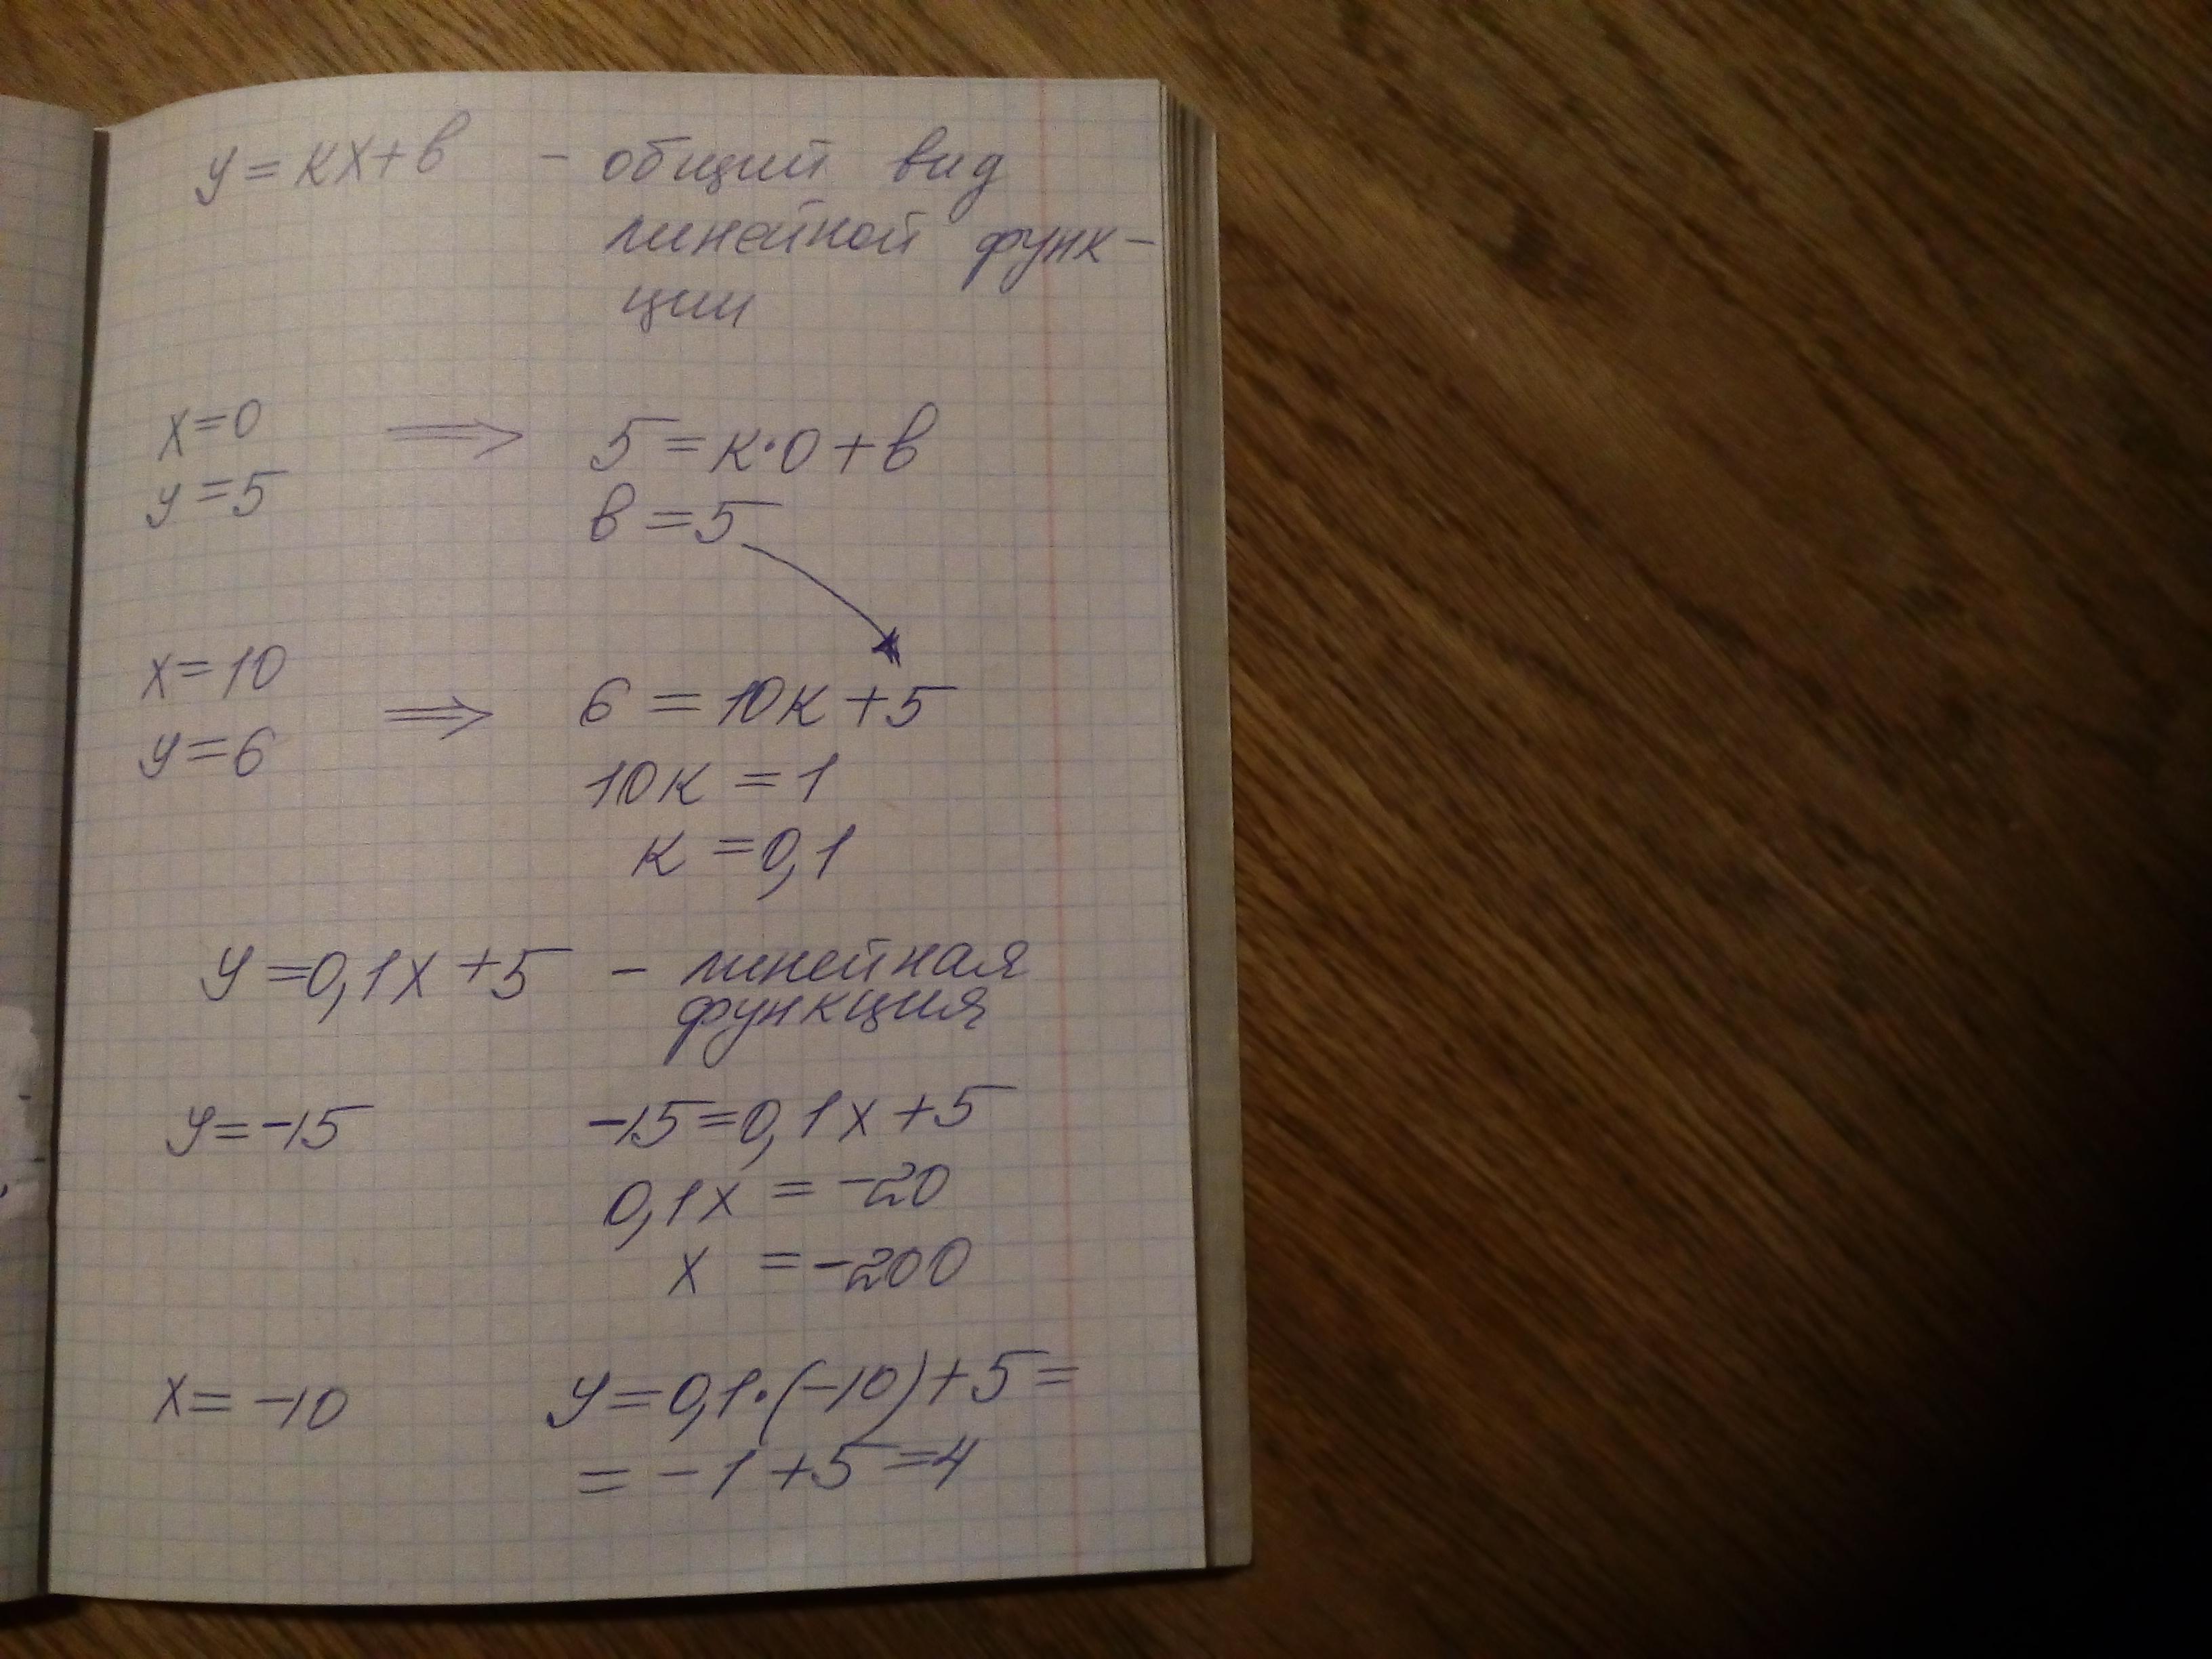 y = кx + в - общий вид
линейной функ-
ции
x = 0 ⟹ 5 = к·0 + в
y = 5 в = 5
x = 10 ⟹ 6 = 10к + 5
y = 6 10к = 1
к = 0,1
y = 0,1x + 5 - линейная
функция
y = -15 -15 = 0,1x + 5
0,1x = -20
x = -200
x = -10 y = 0,1·(-10) + 5 =
= -1 + 5 = 4